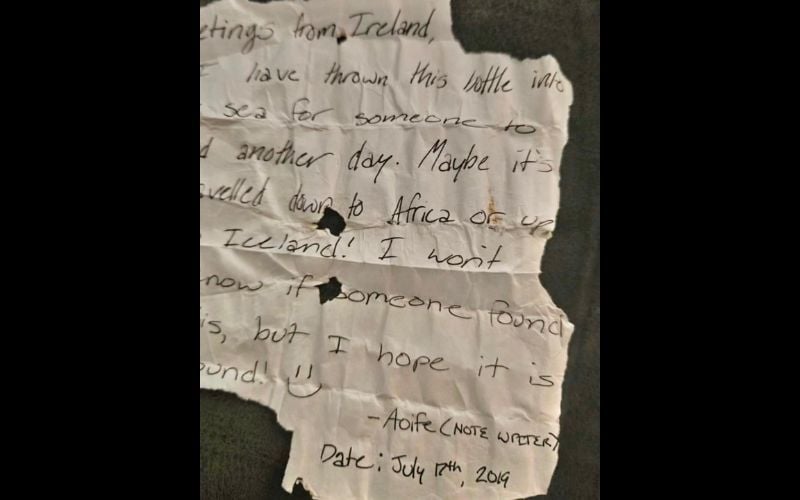 etings from Ireland,
I have thrown this bottle into
sea for someone to
d another day. Maybe it's
avelled down to Africa or up
Iceland! I won't
now if someone found
is, but I hope it is
ound! :)
- Aoife (NOTE WRITER)
Date: July 17th, 2019